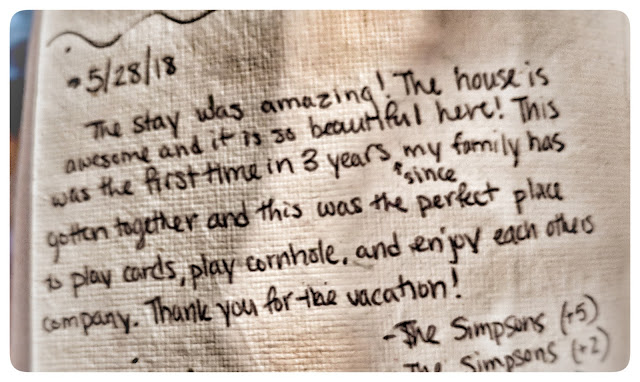 5/28/18
The stay was amazing! The house is
awesome and it is so beautiful here! This
was the first time in 3 years my family has
since
gotten together and this was the perfect place
to play cards, play cornhole, and enjoy each others
company. Thank you for the vacation!
-The Simpsons (+5)
The Simpsons (+2)